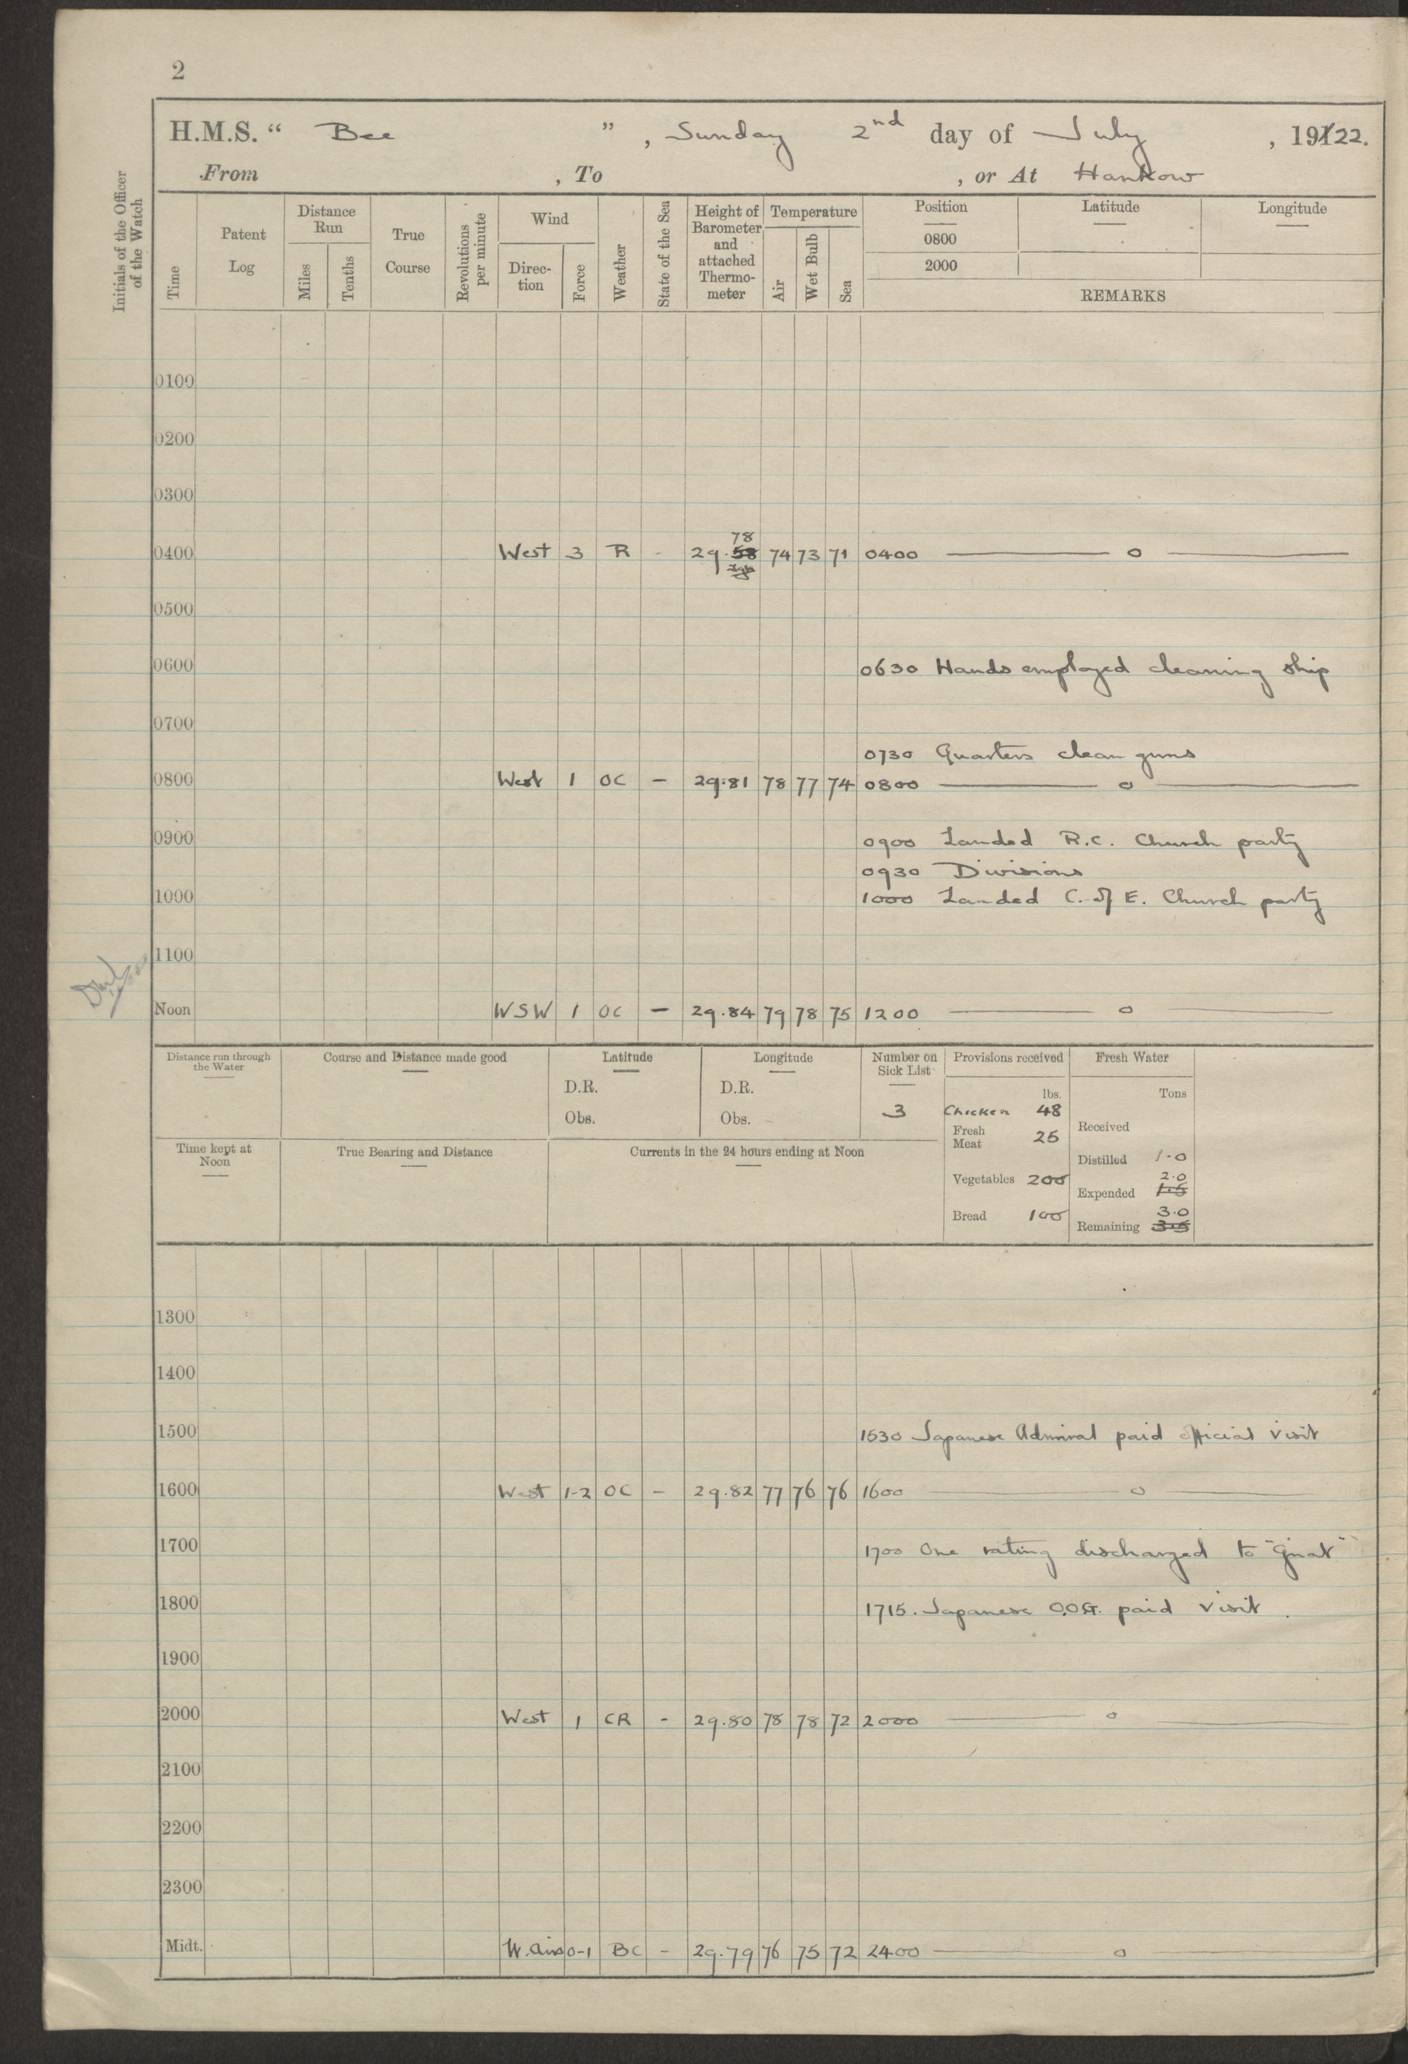 2
H.M.S. “ Bee ” , Sunday 2nd day of July , 19122.
From , To , or At Hankow
Initials of the Officer of the Watch
Time
Patent Log
Distance Run
Miles
Tenths
True Course
Revolutions per minute
Wind
Direc-tion
Force
Weather
State of the Sea
Height of Barometer and attached Thermo-meter
Temperature
Air
Wet Bulb
Sea
Position
Latitude
Longitude
0800
2000
REMARKS
0100
0200
0300
78
0400 West 3 R - 29.58 74 73 71 0400 —— o ——
0500
0600 0630 Hands employed cleaning ship
0700
0730 Quarters clean guns
0800 West 1 OC — 29.81 78 77 74 0800 —— o ——
0900 0900 Landed R.C. Church party
0930 Divisions
1000 1000 Landed C. of E. Church party
1100
Noon WSW 1 OC — 29.84 79 78 75 1200 —— o ——
Distance run through the Water
Course and Distance made good
Latitude
D.R.
Obs.
Longitude
D.R.
Obs.
Number on Sick List
3
Provisions received
lbs.
Chicken 48
Fresh Meat 25
Vegetables 200
Bread 100
Fresh Water
Tons
Received
Distilled 1.0
2.0
Expended 1.5
3.0
Remaining 3.5
Time kept at Noon
True Bearing and Distance
Currents in the 24 hours ending at Noon
1300
1400
1500 1530 Japanese Admiral paid official visit
1600 West 1-2 OC — 29.82 77 76 76 1600 —— o ——
1700 1700 One rating discharged to "Gnat"
1800 1715. Japanese O.O.G. paid visit .
1900
2000 West 1 CR - 29.80 78 78 72 2000 —— o ——
2100
2200
2300
Midt. W. airs 0-1 BC - 29.79 76 75 72 2400 —— o